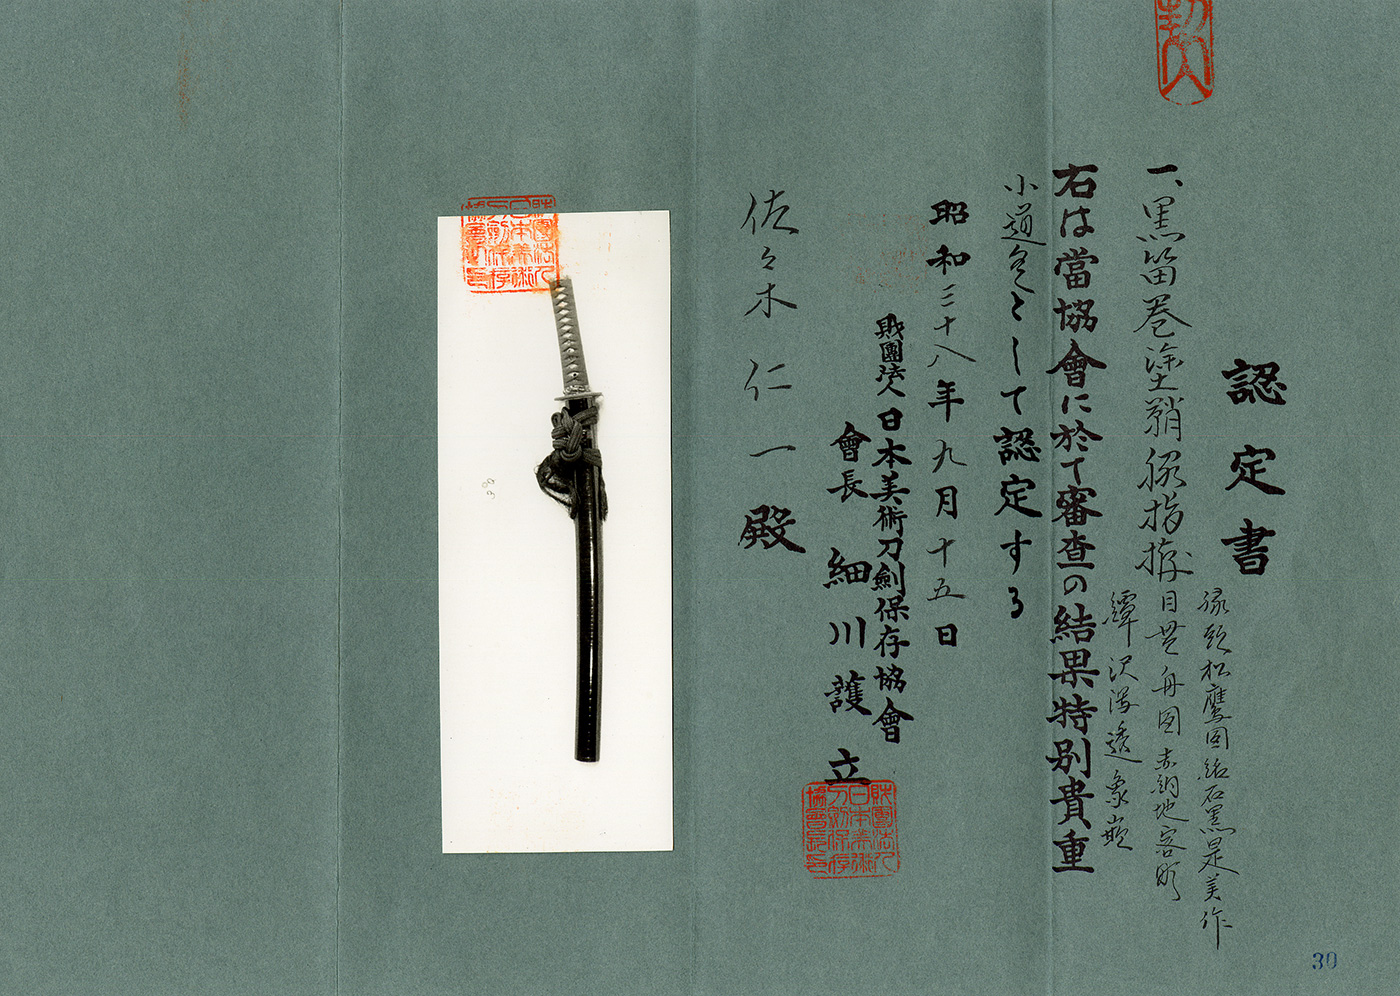 認定書
一、黒笛巻塗鞘脇指拵
縁頭松鷹図銘石黒是美作
目貫舟図赤銅地容彫
鐔沢瀉透象嵌
右は當協會に於て審査の結果特別貴重
小道具として認定する
昭和三十八年九月十五日
財團法人日本美術刀劍保存協會
會長 細川護立
財團法人日本美術刀劍保存協會長印
佐々木仁一殿
30